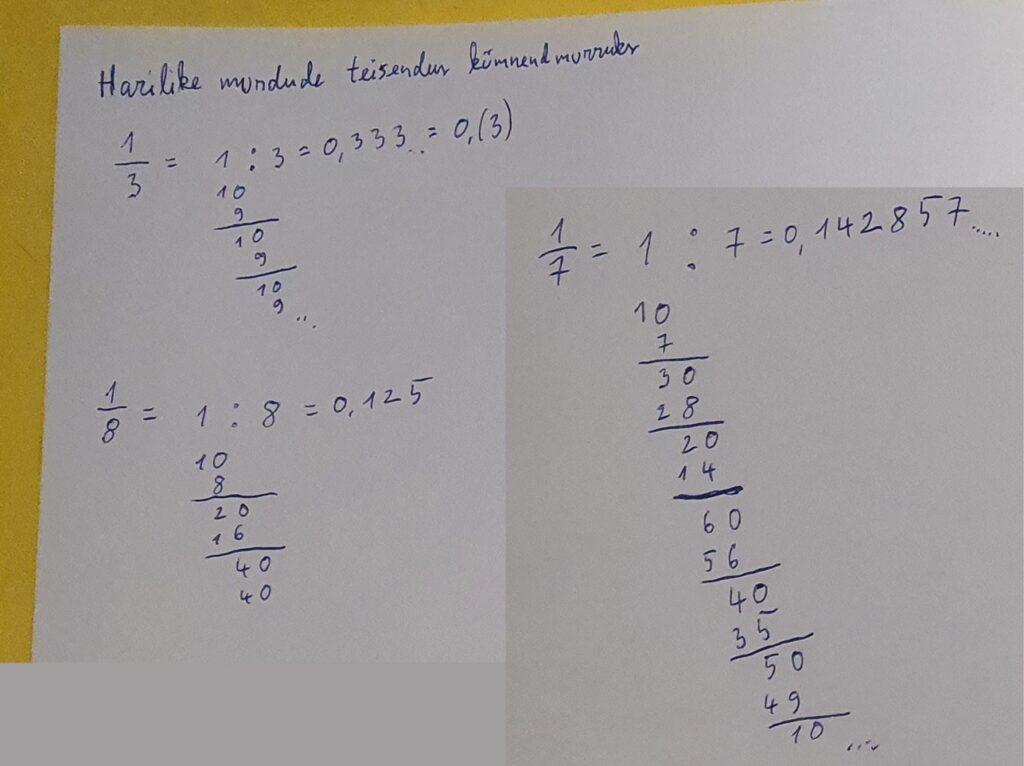 Harilike murdude teisendus kümnendmurruks
1/3 = 1 : 3 = 0,333... = 0,(3)
10
9
10
9
10
9 ...
1/8 = 1 : 8 = 0,125
10
8
20
16
40
40
1/7 = 1 : 7 = 0,142857.....
10
7
30
28
20
14
60
56
40
35
50
49
10 ....